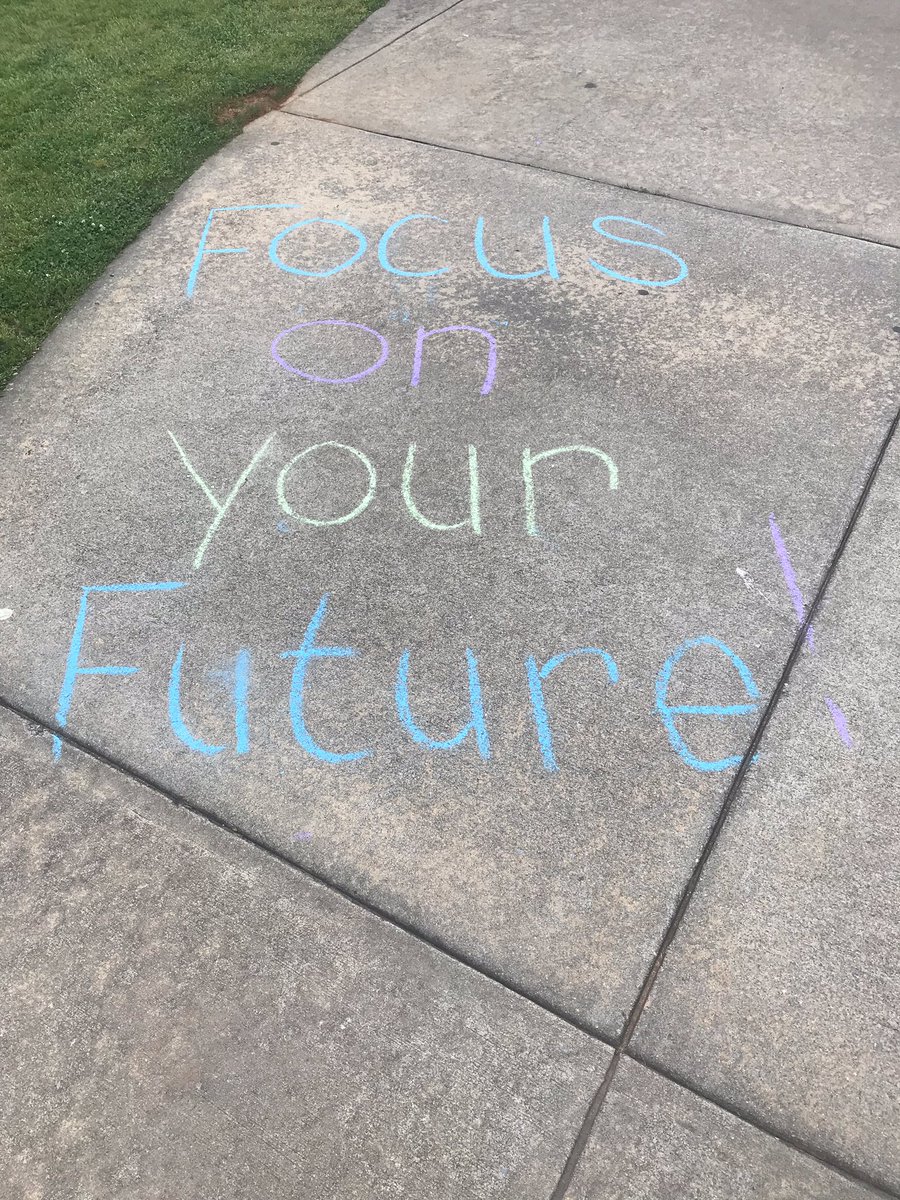 Focus
on
your
Future!